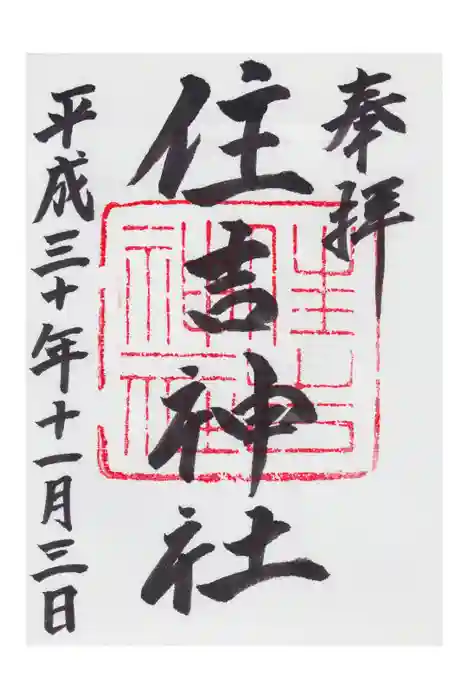 奉拝
住吉神社
平成三十年十一月三日
住吉神社